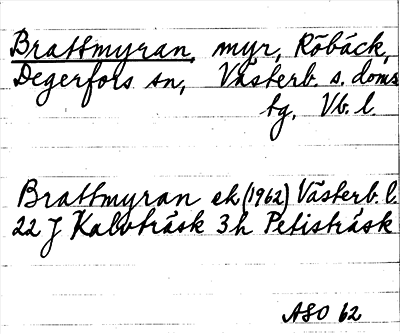 Brattmyran, myr, Röbäck,
Degerfors sn, Västerb. s. doms
tg, Vb. l.
Brattmyran ek (1962) Västerb. l.
22 J Kalvträsk 3h Petisträsk
ASO 62